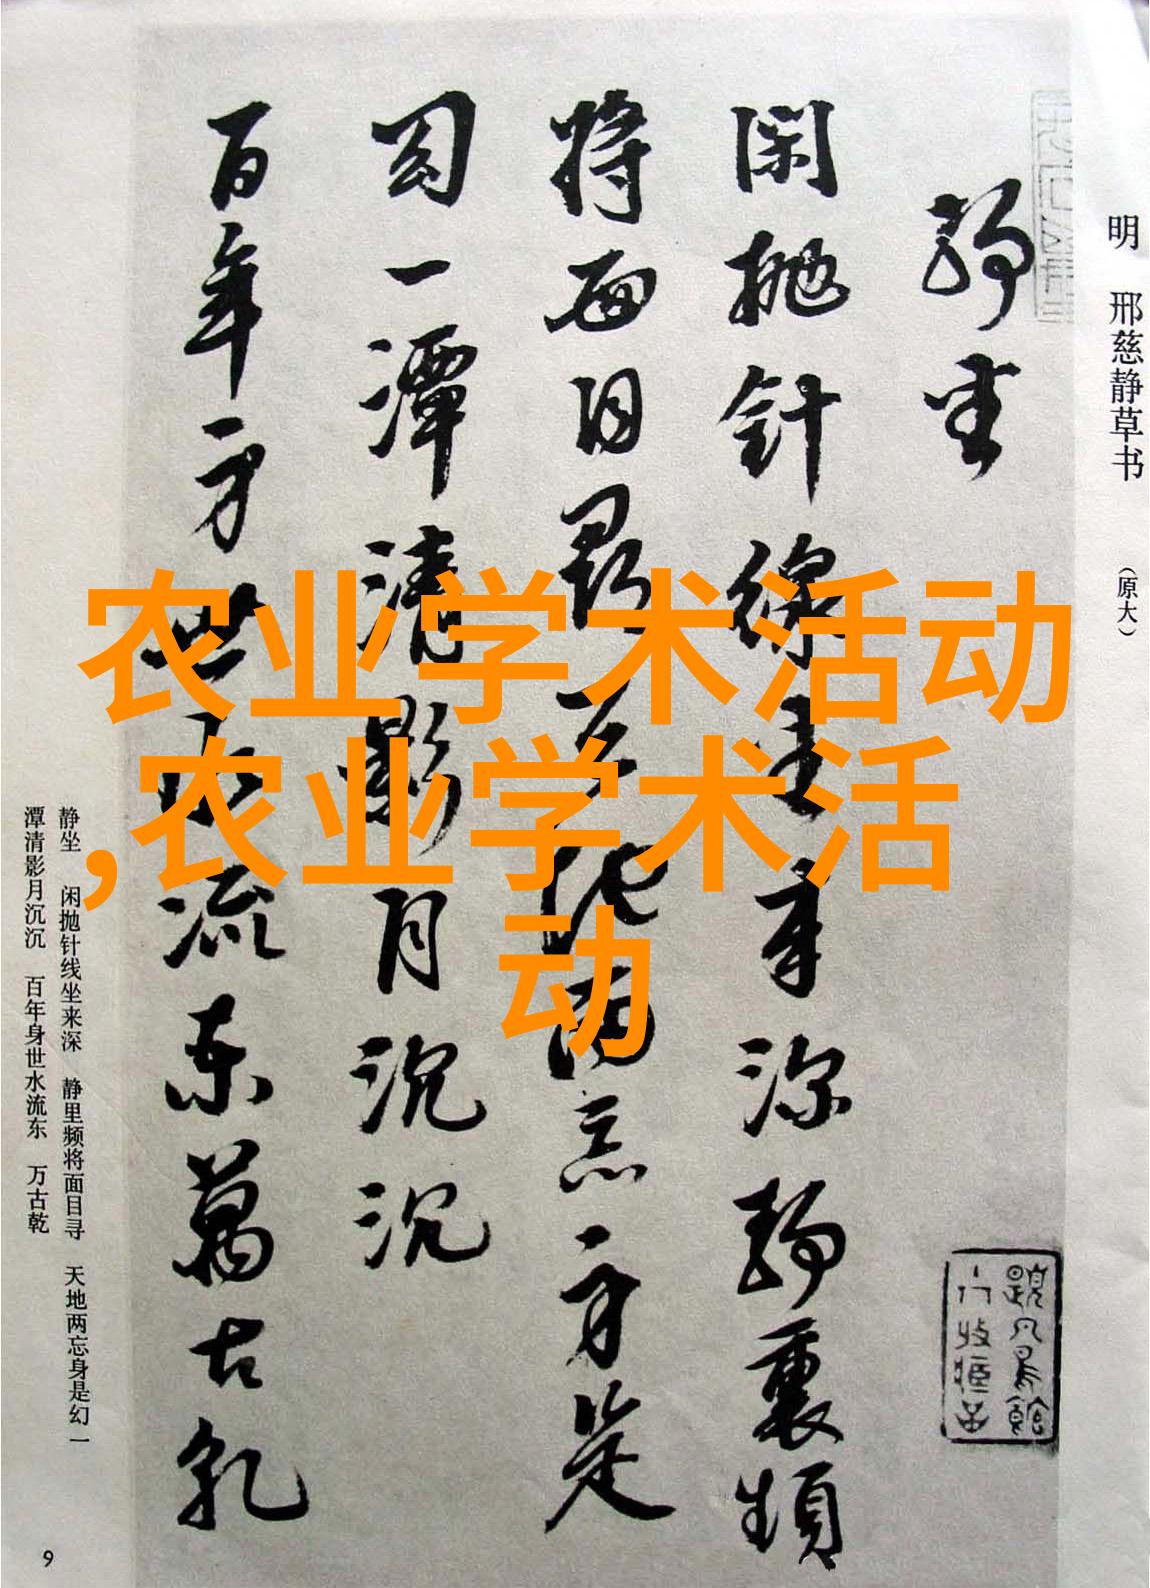 明 邢慈静草书 （原大）
静坐
闲抛针线坐来深静裏频
将面目寻天地两忘身是
幻一潭清影月沉沉
百年身世水流东万古乾
农业学术活动
,农业学术活
动
静坐 闲抛针线坐来深 静里频将面目寻 天地两忘身是幻 一
潭清影月沉沉 百年身世水流东 万古乾
9